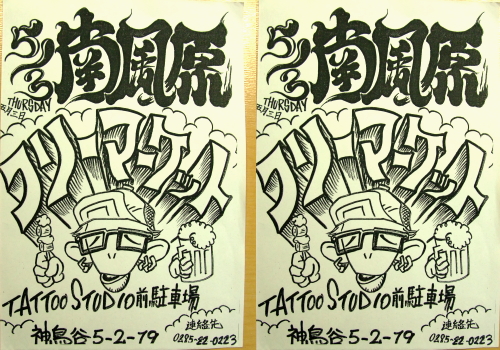 5/3 南風原
THURSDAY
五月三日
フリーマーケット
TATTOO STUDIO前駐車場
神鳥谷5-2-79
連絡先
0285-22-0223
5/3 南風原
THURSDAY
五月三日
フリーマーケット
TATTOO STUDIO前駐車場
神鳥谷5-2-79
連絡先
0285-22-0223